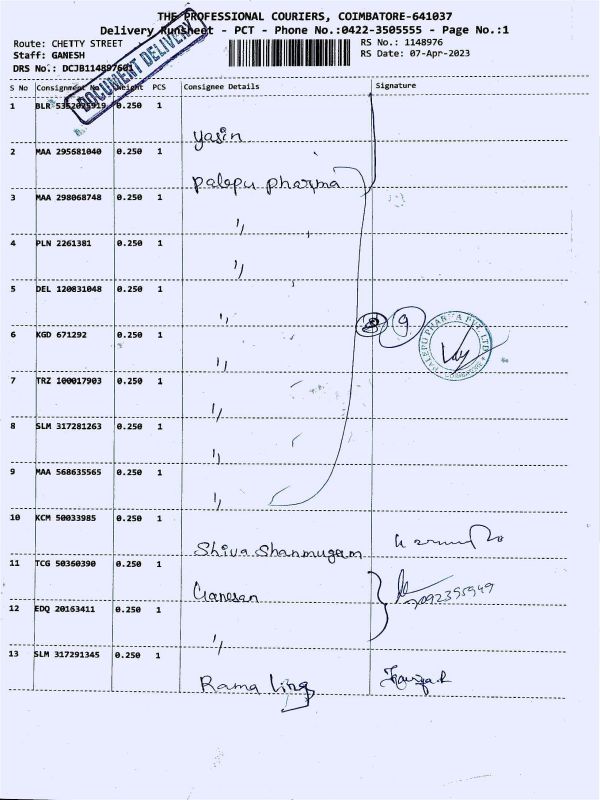 THE PROFESSIONAL COURIERS, COIMBATORE-641037
Delivery Runsheet - PCT - Phone No.:0422-3505555 - Page No.:1
Route: CHETTY STREET
RS No.: 1148976
Staff: GANESH
RS Date: 07-Apr-2023
DRS No.: DCJB114897601
DOCUMENT DELIVERY
S No Consignment No Weight PCS Consignee Details Signature
1 BLR 5352025919 0.250 1
Yasin
2 MAA 295681040 0.250 1
Palepu pharma
3 MAA 298068748 0.250 1
"
4 PLN 2261381 0.250 1
"
5 DEL 120831048 0.250 1
"
9
PALEPU PHARMA PVT. LTD. COIMBATORE
6 KGD 671292 0.250 1
"
7 TRZ 100017903 0.250 1
"
8 SLM 317281263 0.250 1
"
9 MAA 568635565 0.250 1
"
10 KCM 50033985 0.250 1
Shiva Shanmugam
11 TCG 50360390 0.250 1
Ganesan
12 EDQ 20163411 0.250 1
"
13 SLM 317291345 0.250 1
Rama ling